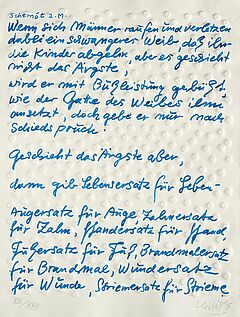 Schemōt 2.M.
Wenn sich Männer raufen und verletzen
dabei ein schwangeres Weib, daß ihr
die Kinder abgehn, aber es geschieht
nicht das Ärgste,
wird er mit Bußleistung gebüßt,
wie der Gatte des Weibes ihm
ansetzt, doch gebe er nur nach
Schiedspruch.
Geschieht das Ärgste aber,
dann gib Lebensersatz für Leben-
Augersatz für Auge, Zahnersatz
für Zahn, Handersatz für Hand,
Fußersatz für Fuß, Brandmalersatz
für Brandmal, Wundersatz
für Wunde, Striemersatz für Strieme